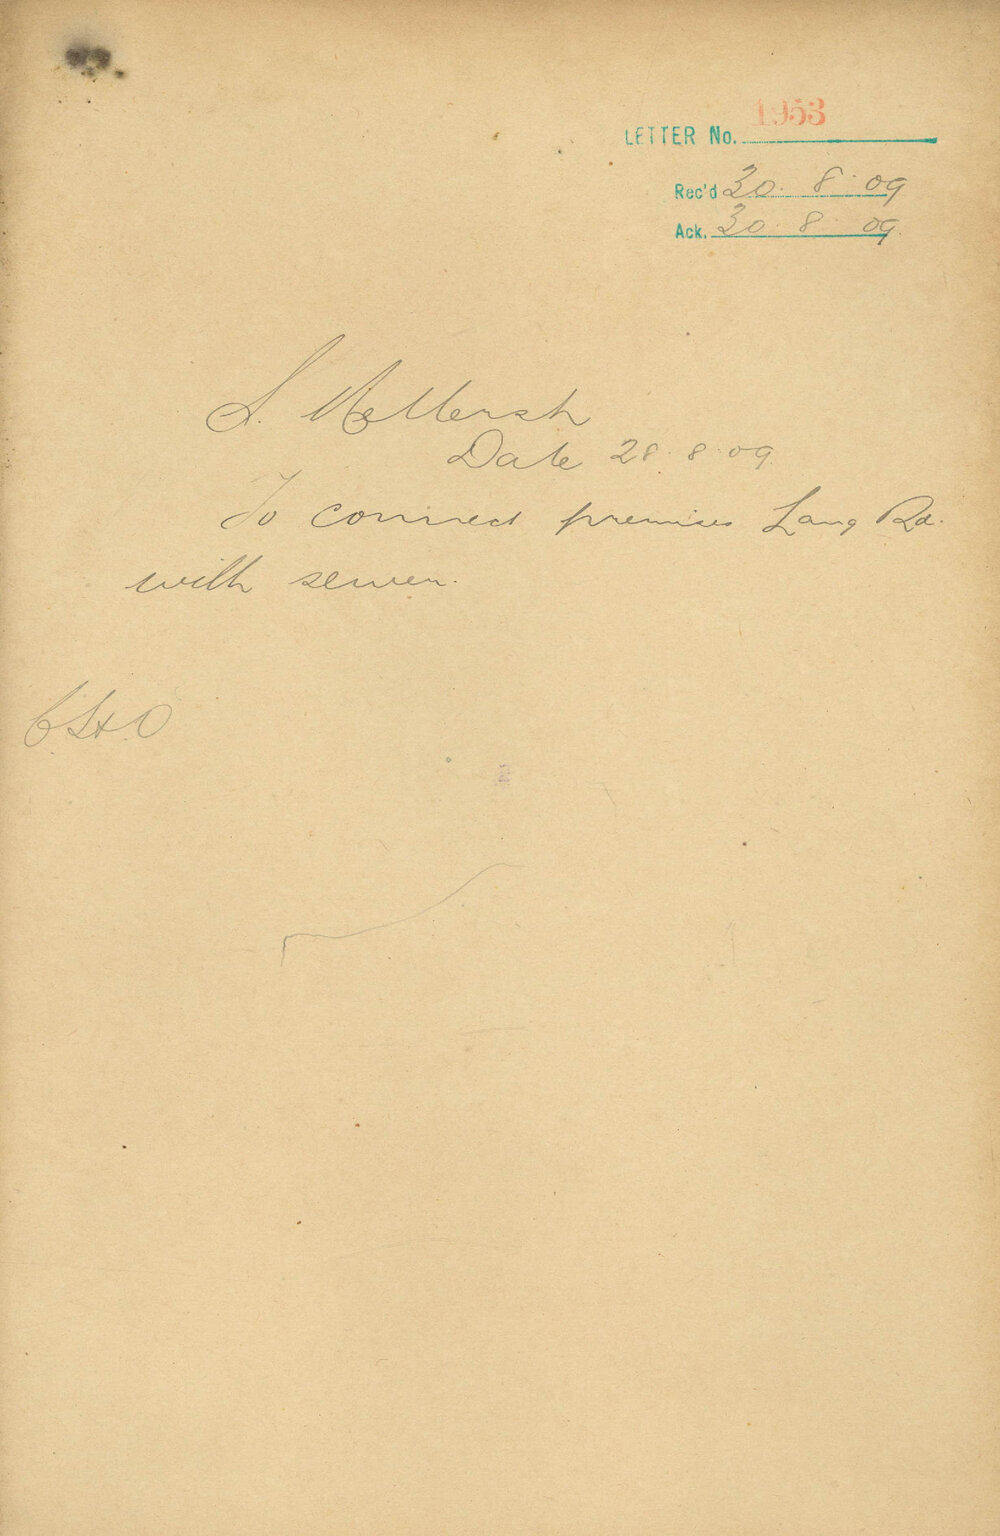 LETTER No. 1953
Rec'd 30. 8. 09
Ack. 30 8 09.
S. Mellersh
Date 28. 8. 09.
To connect premises Lang Rd.
with sewer.